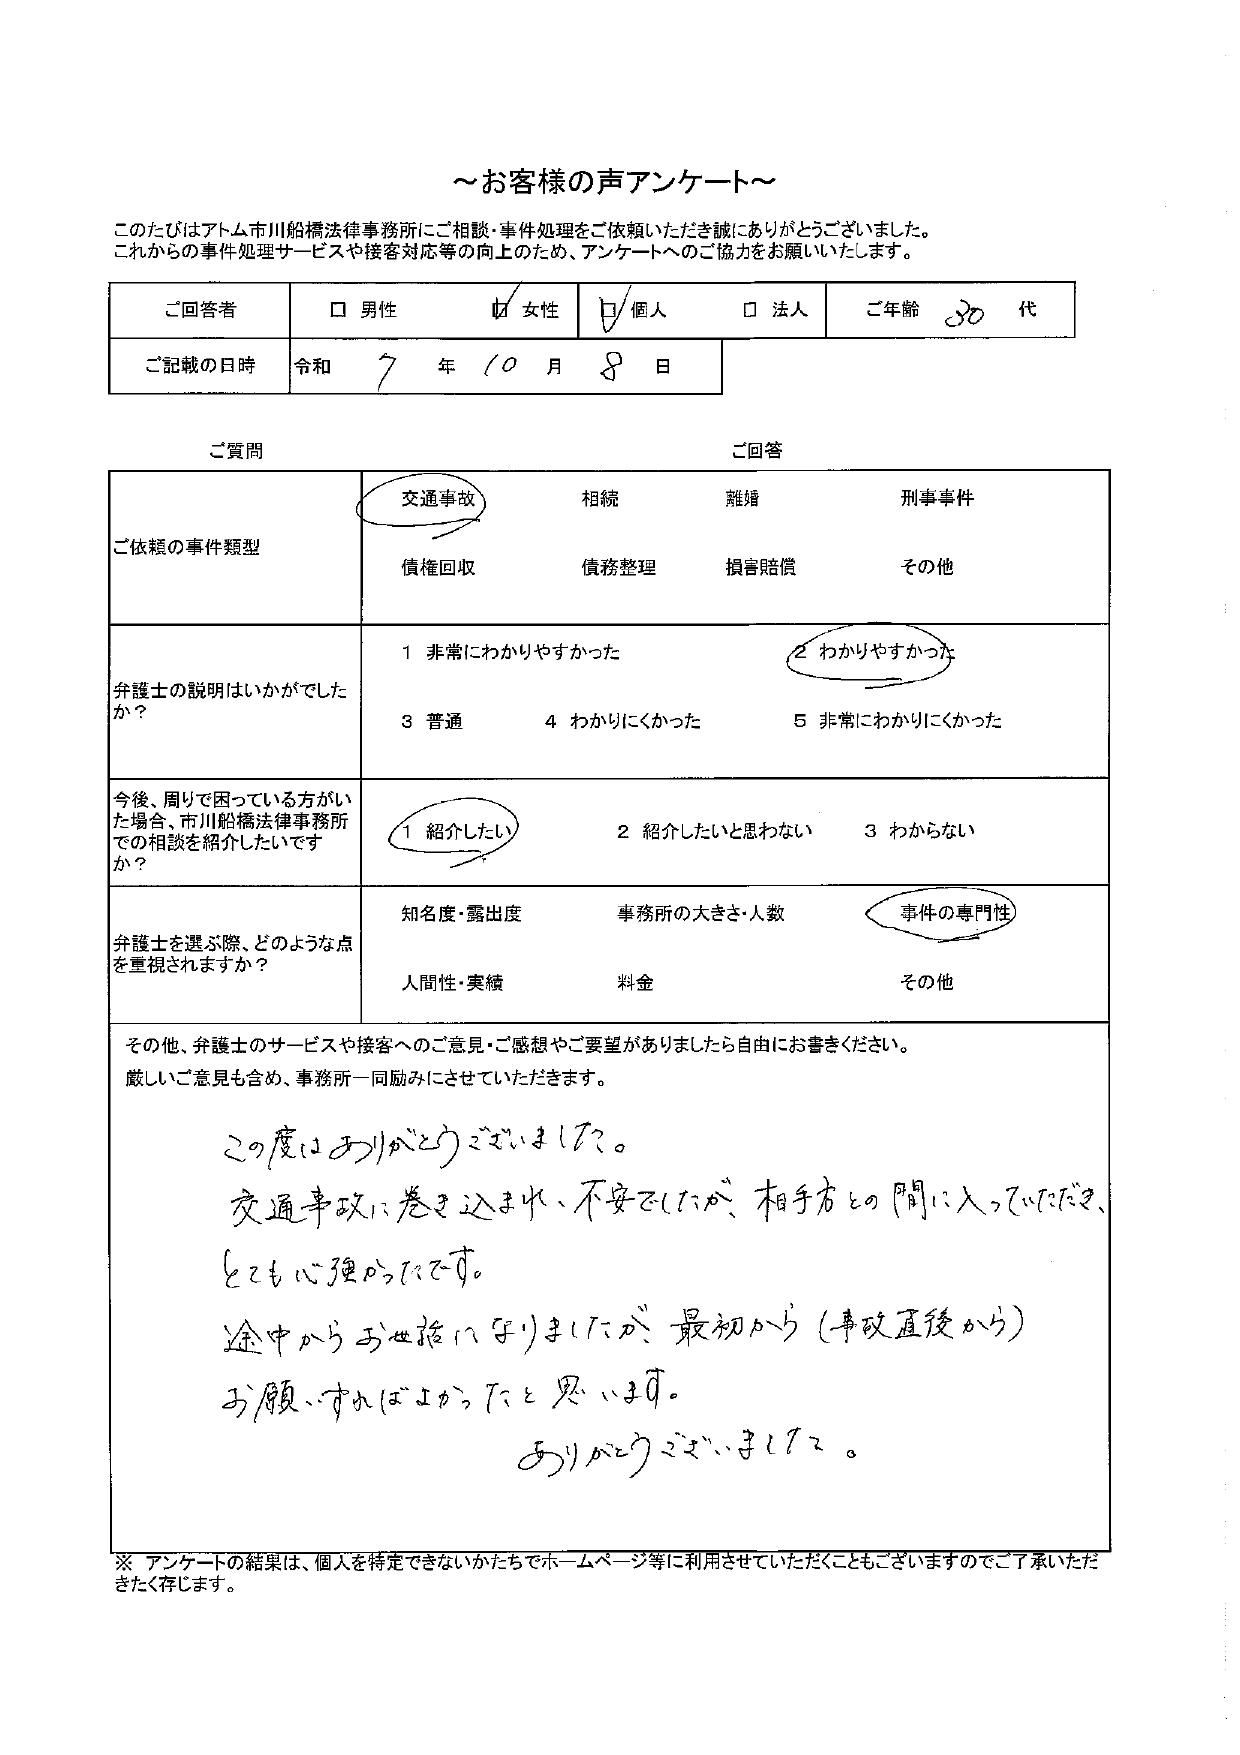 ～お客様の声アンケート～
このたびはアトム市川船橋法律事務所にご相談・事件処理をご依頼いただき誠にありがとうございました。
これからの事件処理サービスや接客対応等の向上のため、アンケートへのご協力をお願いいたします。
ご回答者 □ 男性 ☑ 女性 ☑ 個人 □ 法人 ご年齢 30 代
ご記載の日時 令和 7 年 10 月 8 日
ご質問 ご回答
ご依頼の事件類型
交通事故 相続 離婚 刑事事件
債権回収 債務整理 損害賠償 その他
弁護士の説明はいかがでした
か？
1 非常にわかりやすかった 2 わかりやすかった
3 普通 4 わかりにくかった 5 非常にわかりにくかった
今後、周りで困っている方がい
た場合、市川船橋法律事務所
での相談を紹介したいです
か？
1 紹介したい 2 紹介したいと思わない 3 わからない
弁護士を選ぶ際、どのような点
を重視されますか？
知名度・露出度 事務所の大きさ・人数 事件の専門性
人間性・実績 料金 その他
その他、弁護士のサービスや接客へのご意見・ご感想やご要望がありましたら自由にお書きください。
厳しいご意見も含め、事務所一同励みにさせていただきます。
この度はありがとうございました。
交通事故に巻き込まれ、不安でしたが、相手方との間に入っていただき、
とても心強かったです。
途中からお世話になりましたが、最初から（事故直後から）
お願いすればよかったと思います。
ありがとうございました。
※ アンケートの結果は、個人を特定できないかたちでホームページ等に利用させていただくこともございますのでご了承いただ
きたく存じます。